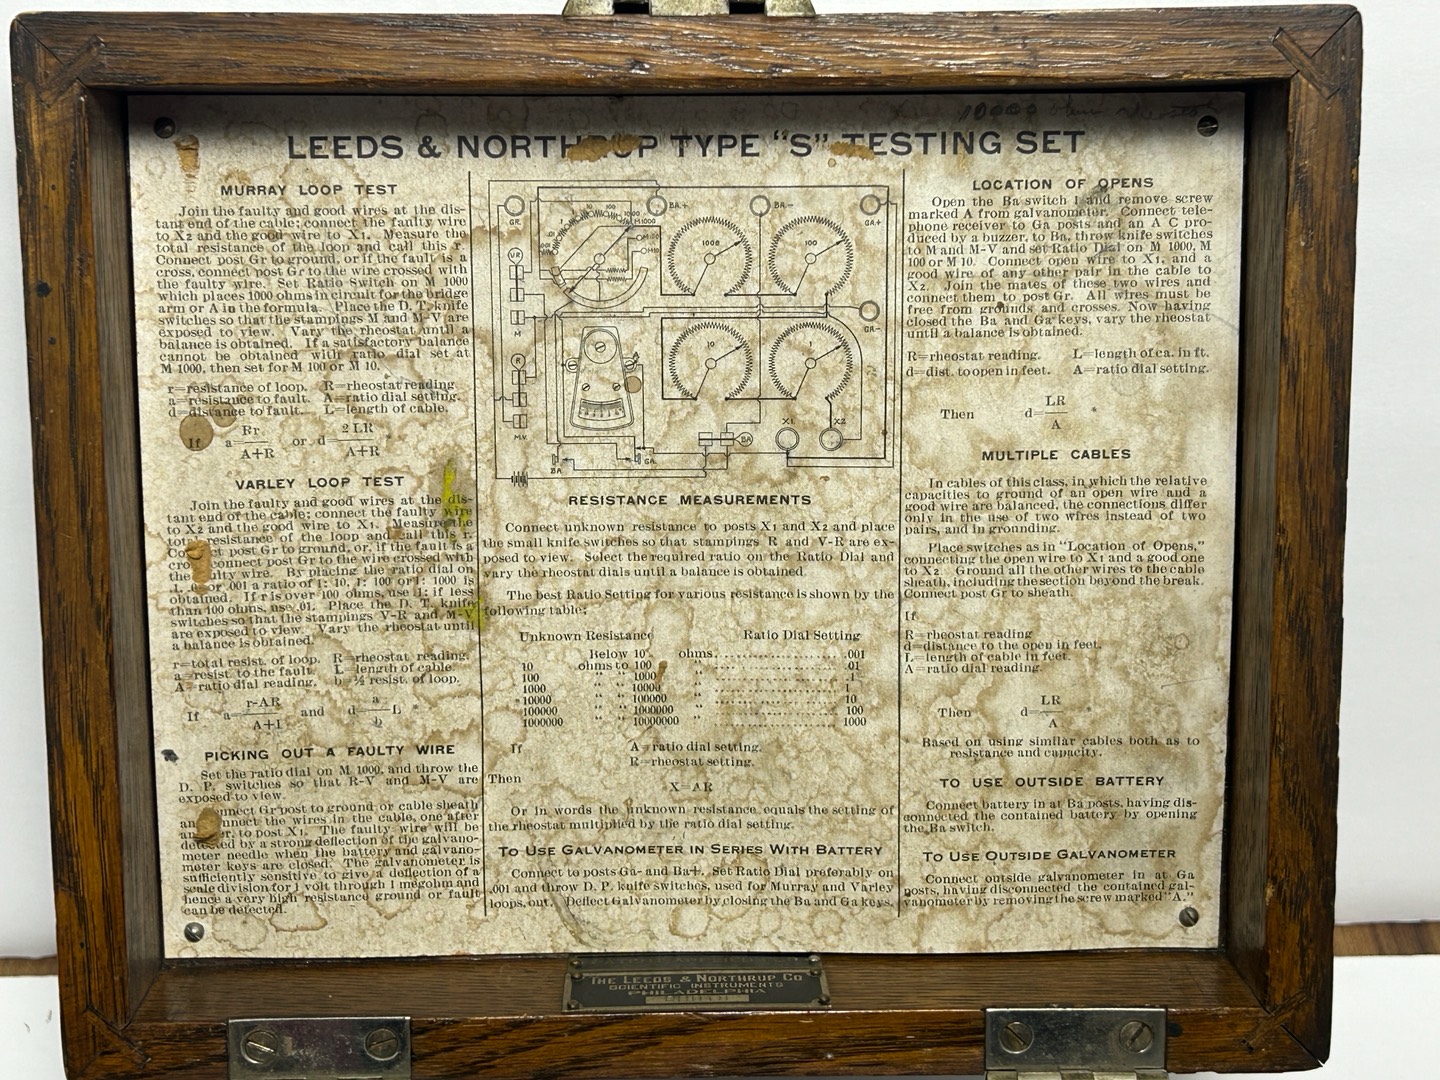 LEEDS & NORTHRUP TYPE "S" TESTING SET
MURRAY LOOP TEST
Join the faulty and good wires at the dis-
tant end of the cable; connect the faulty wire
to X2 and the good wire to X1. Measure the
total resistance of the loop and call this r.
Connect post Gr to ground, or if the fault is a
cross, connect post Gr to the wire crossed with
the faulty wire. Set Ratio Switch on M 1000
which places 1000 ohms in circuit for the bridge
arm or A in the formula. Place the D. T. knife
switches so that the stampings M and M-V are
exposed to view. Vary the rheostat until a
balance is obtained. If a satisfactory balance
cannot be obtained with ratio dial set at
M 1000, then set for M 100 or M 10.
r=resistance of loop. R=rheostat reading
a=resistance to fault. A=ratio dial setting.
d=distance to fault. L=length of cable.
If a= Rr/A+R or d= 2LR/A+R *
VARLEY LOOP TEST
Join the faulty and good wires at the dis-
tant end of the cable; connect the faulty wire
to X2 and the good wire to X1. Measure the
total resistance of the loop and call this r.
Connect post Gr to ground, or, if the fault is a
cross connect post Gr to the wire crossed with
the faulty wire. By placing the ratio dial on
.1, .01 or .001 a ratio of 1: 10, 1: 100 or 1: 1000 is
obtained. If r is over 100 ohms, use .1: if less
than 100 ohms, use .01. Place the D. T. knife
switches so that the stampings V-R and M-V
are exposed to view. Vary the rheostat until
a balance is obtained.
r=total resist. of loop. R=rheostat reading.
a=resist. to the fault. L=length of cable
A=ratio dial reading. b=½ resist. of loop.
If a= r-AR/A+1 and d= a/b L *
PICKING OUT A FAULTY WIRE
Set the ratio dial on M 1000, and throw the
D. P. switches so that R-V and M-V are
exposed to view.
Connect Gr post to ground or cable sheath
and connect the wires in the cable, one after
another, to post X1. The faulty wire will be
detected by a strong deflection of the galvano-
meter needle when the battery and galvano-
meter keys are closed. The galvanometer is
sufficiently sensitive to give a deflection of a
scale division for 1 volt through 1 megohm and
hence a very high resistance ground or fault
can be detected.
GR. BA+ BA- GA+
.001 .01 .1 1 10 100 1000 M1000 M100 M10
1000 100
VR M GA-
R M.V. A 10 1
X1 X2 BA
BA GA
RESISTANCE MEASUREMENTS
Connect unknown resistance to posts X1 and X2 and place
the small knife switches so that stampings R and V-R are ex-
posed to view. Select the required ratio on the Ratio Dial and
vary the rheostat dials until a balance is obtained.
The best Ratio Setting for various resistance is shown by the
following table;
Unknown Resistance Ratio Dial Setting
Below 10 ohms .001
10 ohms to 100 " .01
100 " " 1000 " .1
1000 " " 10000 " 1
10000 " " 100000 " 10
100000 " " 1000000 " 100
1000000 " " 10000000 " 1000
If A=ratio dial setting.
R=rheostat setting.
Then
X=AR
Or in words the unknown resistance equals the setting of
the rheostat multiplied by the ratio dial setting.
TO USE GALVANOMETER IN SERIES WITH BATTERY
Connect to posts Ga- and Ba+. Set Ratio Dial preferably on
.001 and throw D. P. knife switches, used for Murray and Varley
loops, out. Deflect Galvanometer by closing the Ba and Ga keys.
LOCATION OF OPENS
Open the Ba switch 1 and remove screw
marked A from galvanometer. Connect tele-
phone receiver to Ga posts and an A C pro-
duced by a buzzer, to Ba, throw knife switches
to M and M-V and set Ratio Dial on M 1000, M
100 or M 10. Connect open wire to X1, and a
good wire of any other pair in the cable to
X2. Join the mates of these two wires and
connect them to post Gr. All wires must be
free from grounds and crosses. Now having
closed the Ba and Ga keys, vary the rheostat
until a balance is obtained.
R=rheostat reading. L=length of ca. in ft.
d=dist. to open in feet. A=ratio dial setting.
Then d= LR/A *
MULTIPLE CABLES
In cables of this class, in which the relative
capacities to ground of an open wire and a
good wire are balanced, the connections differ
only in the use of two wires instead of two
pairs, and in grounding.
Place switches as in "Location of Opens,"
connecting the open wire to X1 and a good one
to X2. Ground all the other wires to the cable
sheath, including the section beyond the break.
Connect post Gr to sheath.
If
R=rheostat reading
d=distance to the open in feet.
L=length of cable in feet.
A=ratio dial reading.
Then d= LR/A
* Based on using similar cables both as to
resistance and capacity.
TO USE OUTSIDE BATTERY
Connect battery in at Ba posts, having dis-
connected the contained battery by opening
the Ba switch.
TO USE OUTSIDE GALVANOMETER
Connect outside galvanometer in at Ga
posts, having disconnected the contained gal-
vanometer by removing the screw marked "A."
THE LEEDS & NORTHRUP CO
SCIENTIFIC INSTRUMENTS
PHILADELPHIA